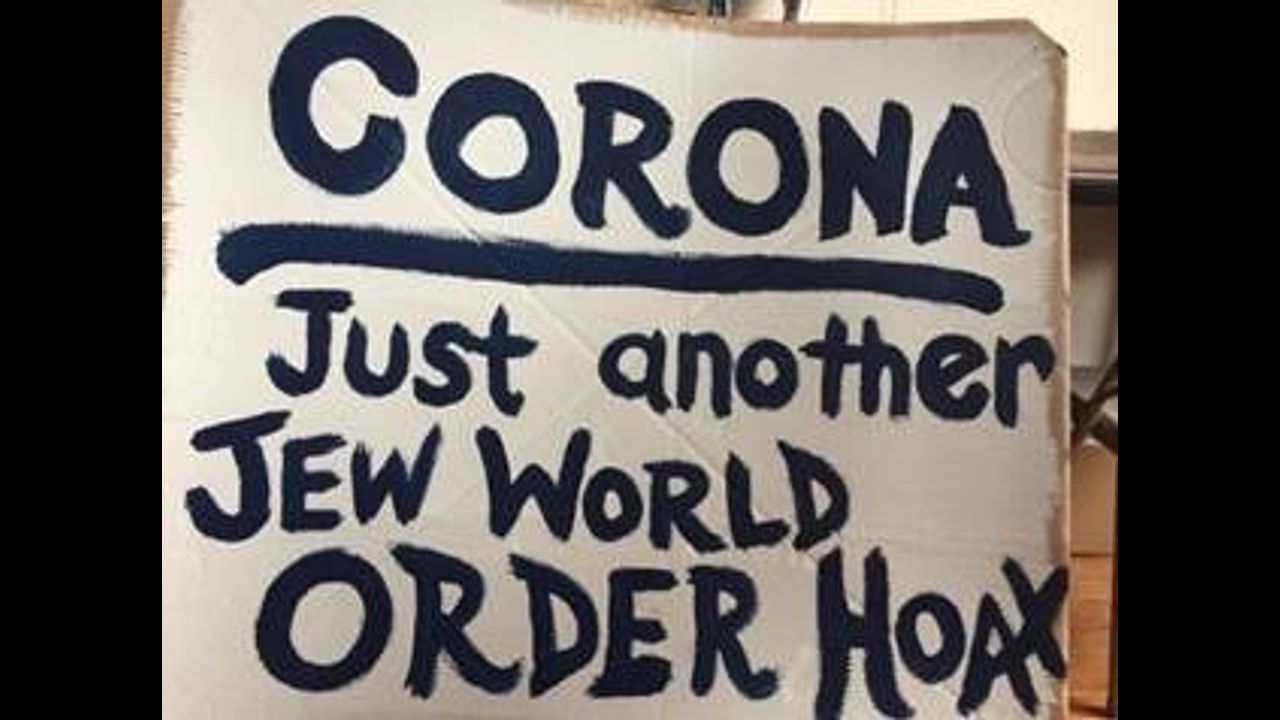 CORONA
Just another
JEW WORLD
ORDER HOAX